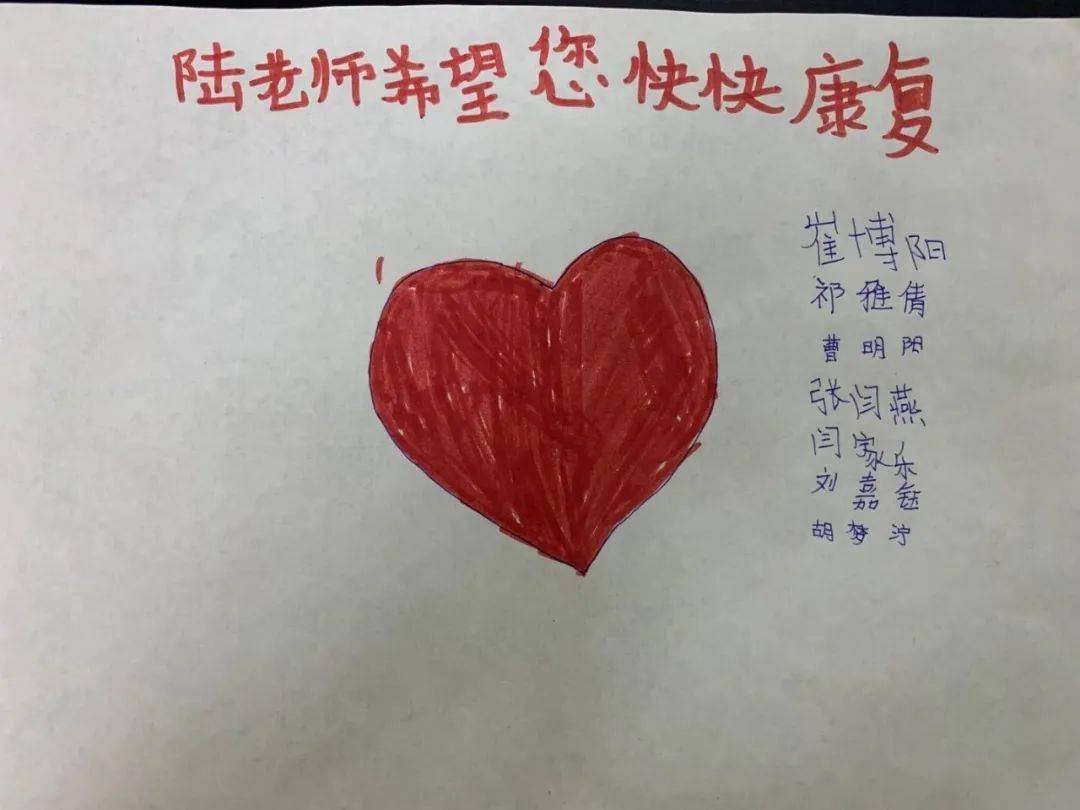 陆老师希望您快快康复
崔博阳
祁雅倩
曹明阳
张闫燕
闫家乐
刘嘉钰
胡梦泞